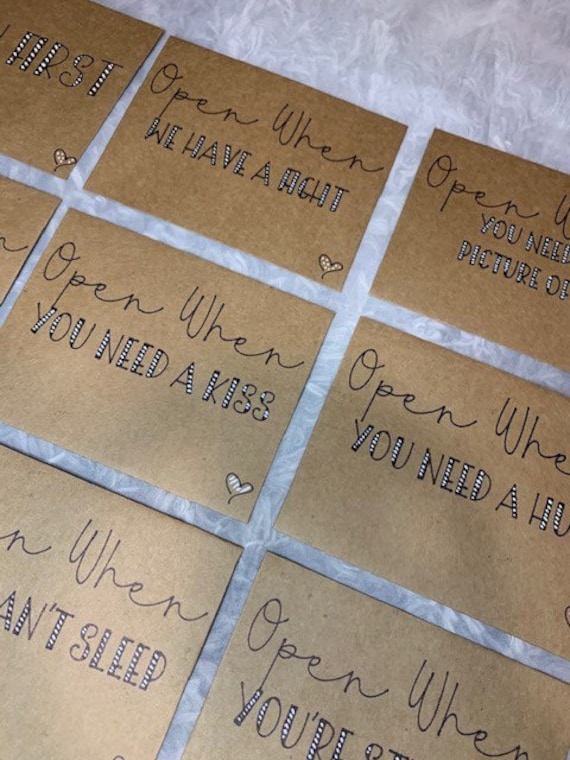 FIRST
Open When
WE HAVE A FIGHT
Open
YOU NEED
PICTURE OF
Open When
YOU NEED A KISS
Open When
YOU NEED A
When
CAN'T SLEEP
Open When
YOU'RE